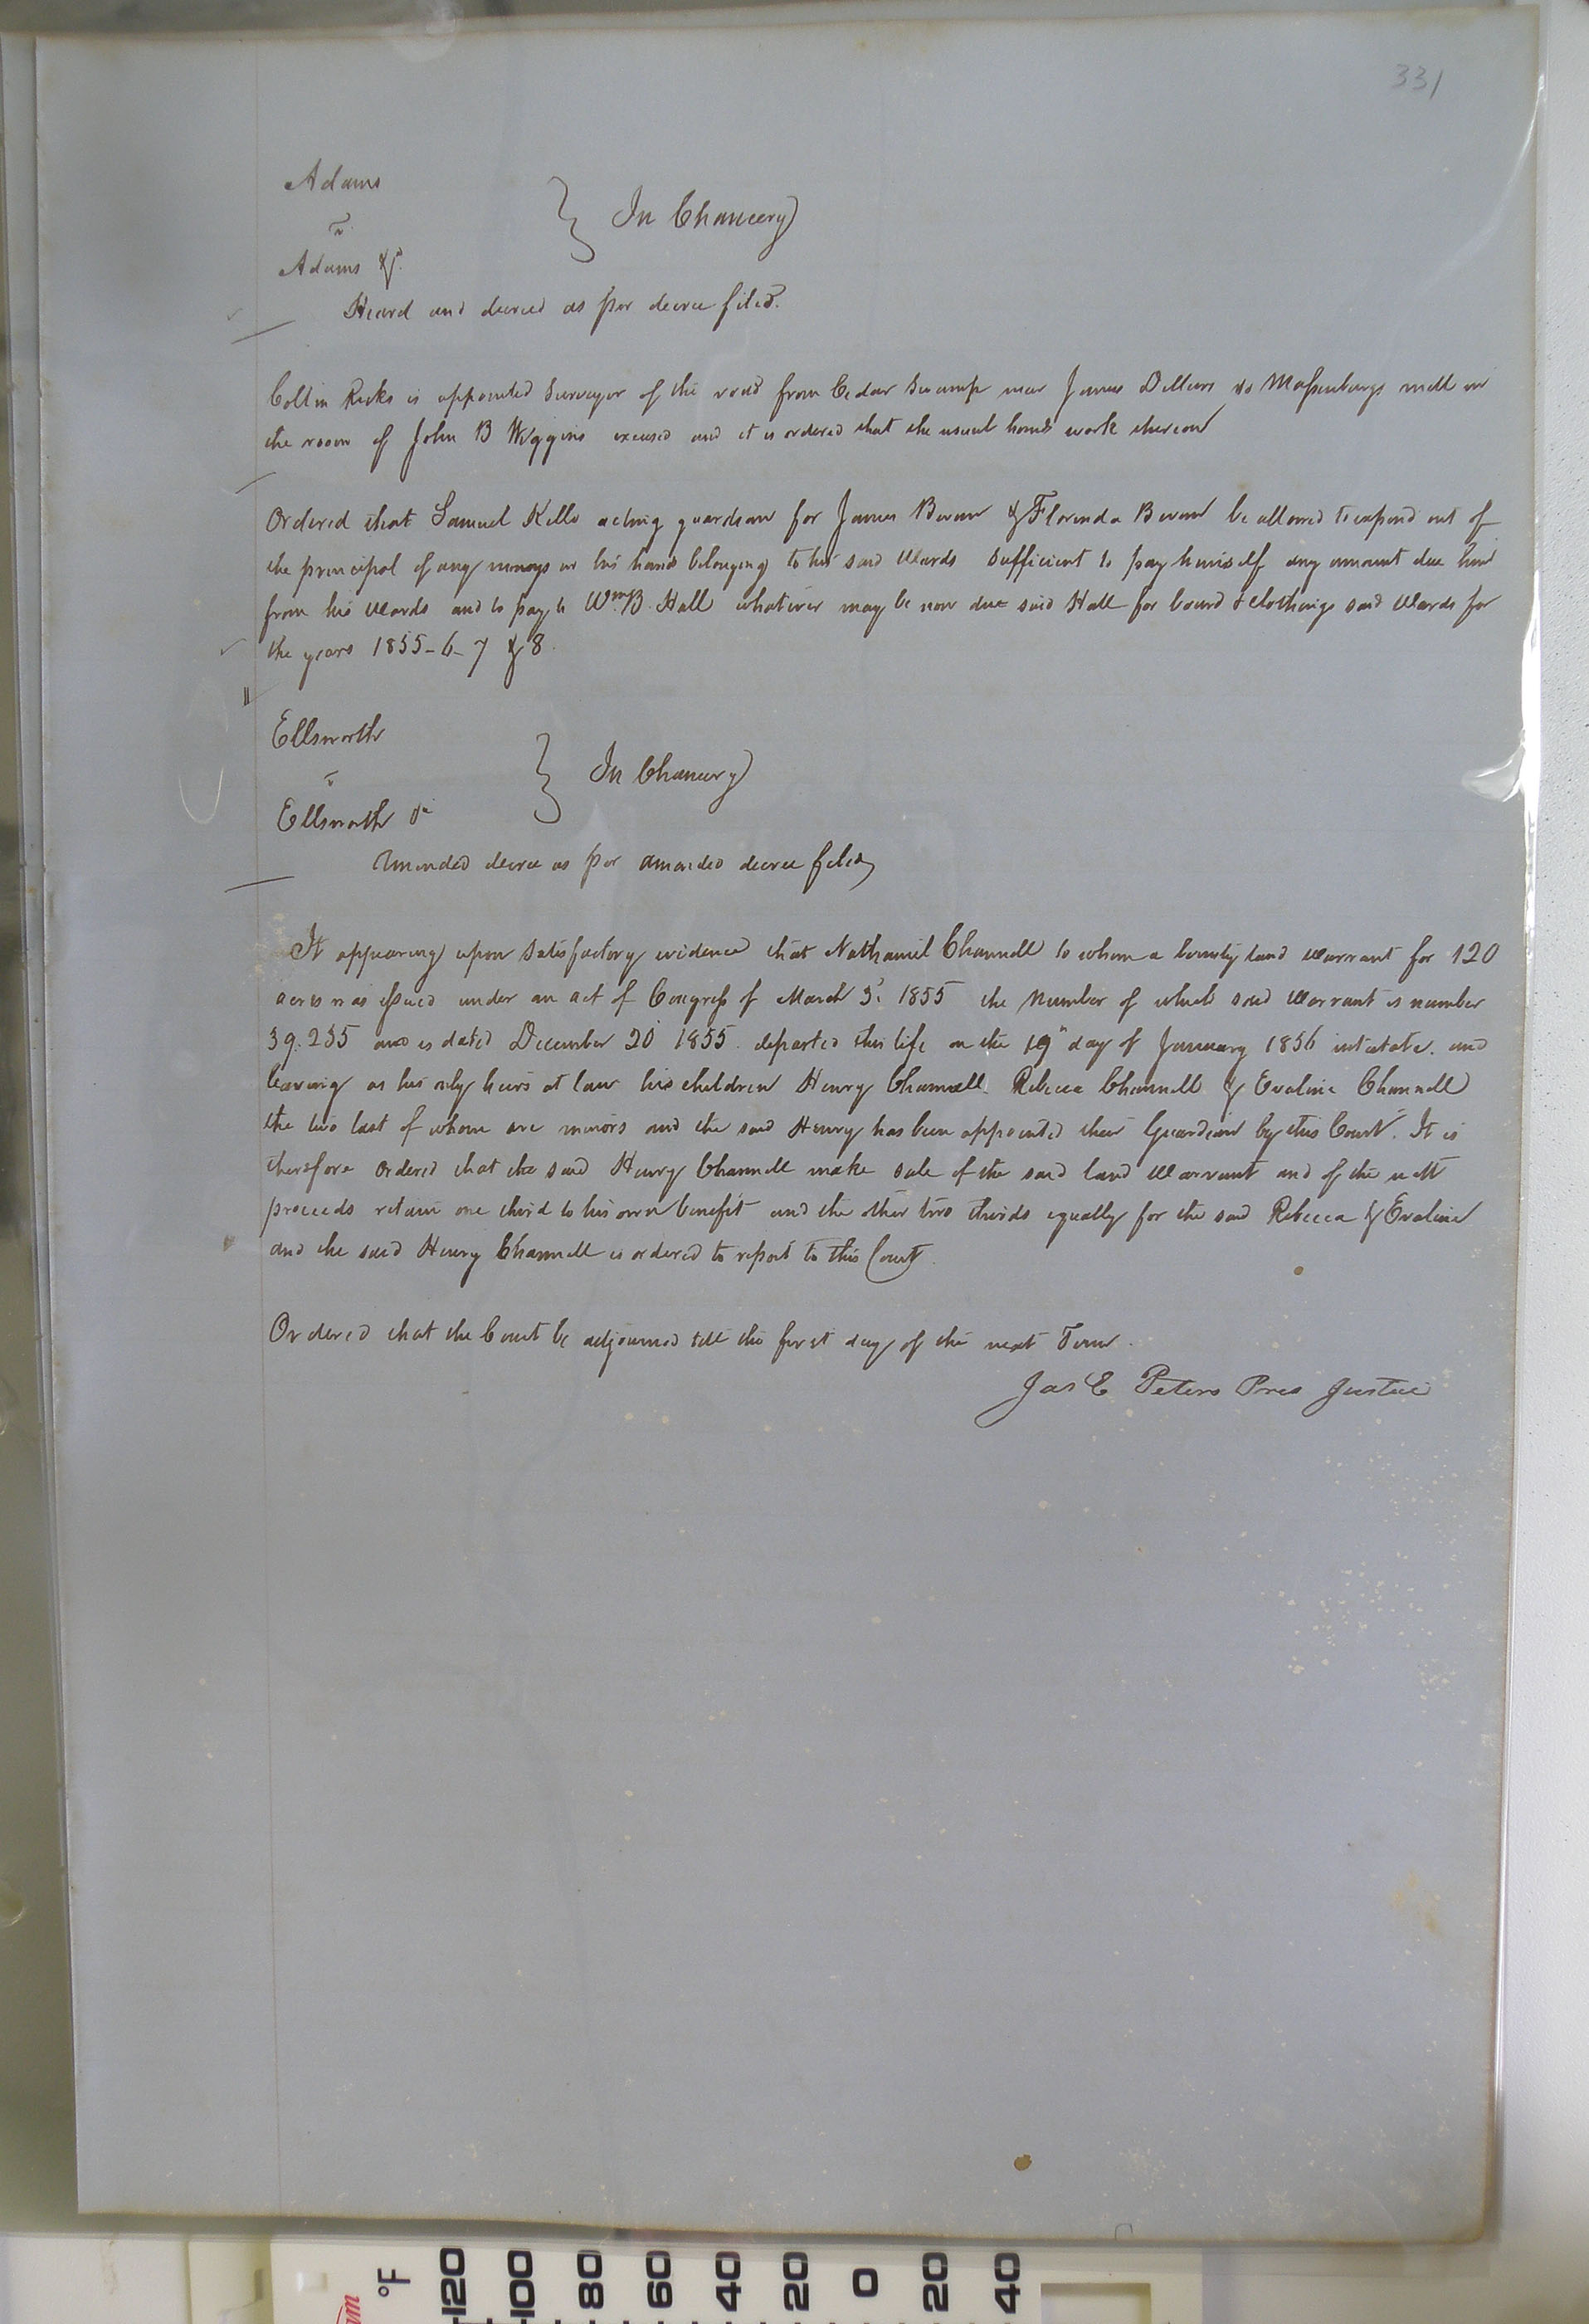 331
Adams
v
Adams &c
} In Chancery
Heard and decreed as per decree filed.
Collin Ricks is appointed Surveyor of the road from Cedar Swamp near James Dillons to Massenburgs mill in
the room of John B Wiggins excused and it is ordered that the usual hands work thereon
Ordered that Samuel Kello acting guardian for James &Florinda be allowed to expend out of
the principal of any moneys in his hands belonging to his said Wards sufficient to pay himself any amount due him
from his Wards and to pay to Wm B. Hall whatever may be now due said Hall for board & clothing said Wards for
the years 1855-6-7 & 8.
Ellsworth
v
Ellsworth &c
} In Chancery
Amended decree as per amended decree filed
It appearing upon satisfactory evidence that Nathaniel Channell to whom a bounty land Warrant for 120
acres was issued under an act of Congress of March 3d 1855 the number of which said Warrant is number
39.255 and is dated December 20 1855. departed this life on the 19" day of January 1856 intestate. and
leaving as his only heirs at law his children Henry Channell Rebecca Channell & Evaline Channell
the two last of whom are minors and the said Henry has been appointed their Guardian by this Court. It is
therefore ordered that the said Henry Channell make sale of the said land Warrant and of the nett
proceeds retain one third to his own benefit and the other two thirds equally for the said Rebecca & Evaline
and the said Henry Channell is ordered to report to this Court.
Ordered that the Court be adjourned till the first day of the next Term.
Jas E Peters Pres Justice
°F
120 100 80 60 40 20 0 20 40